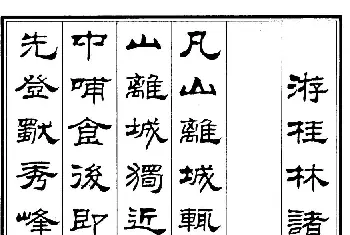 游桂林諸
凡山離城輒
山離城獨近
中哺食後即
先登獨秀峰